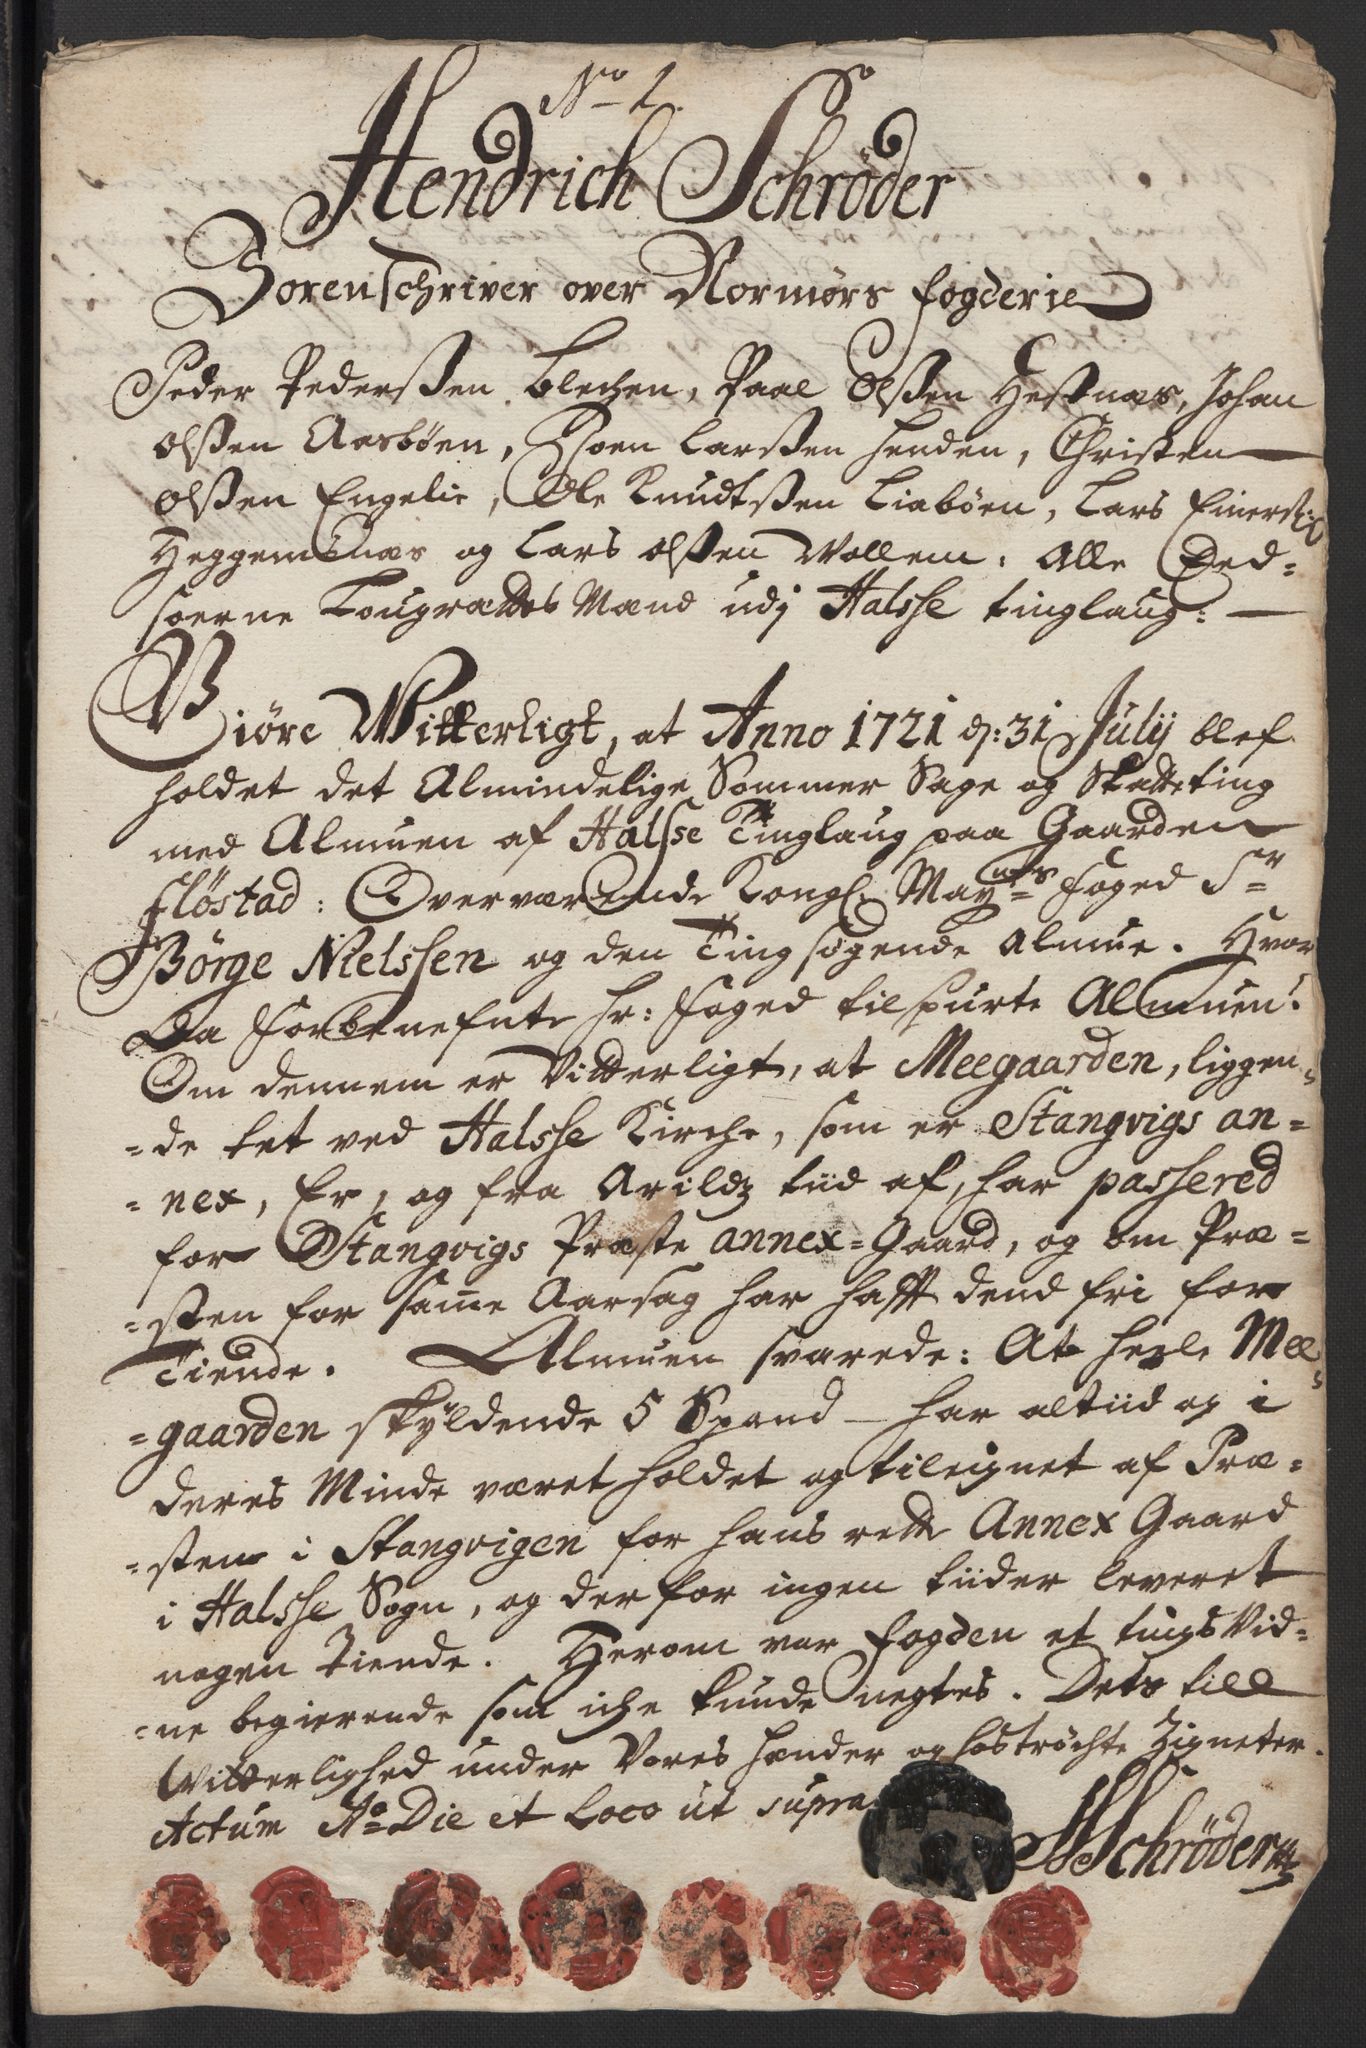 No 1.
Hendrich Schrøder
Sorenschriver over Normørs fogderie
Peder Pederssen Blechen, Paal Olssen Hestnæs, Johan
Olssen Aasbøen, Joen Larssen Henden, Christen
Olssen Engelie, Ole Knudtssen Liabøen, Lars Einerss:
Heggemsnæs og Lars Olssen Vollem: Alle Eed-
soerne Laugrættes Mænd udj Halsse tinglaug:
Giøre Witterligt, at Anno 1721 d: 31 Julij blef
holdet det Almindelige Sommer Sage og Skatteting
med Almuen af Halsse Tinglaug paa Gaarden
Fløstad: Overværende Kongl. Mayts Foged Sr
Børge Nielssen og den Ting søgende Almue. Hvor
Da Forbenefnte Hr: Foged tilspurte Almuen:
Om dennem er Vitterligt, at Meegaarden, liggen-
-de tet ved Halsse Kirche, som er Stangvigs an-
-nex, Er, og fra Arildz tiid af, har passered
for Stangvigs Præste annex-Gaard, og om Præ-
-sten for samme Aarsag har hafft dend fri for
Tiende. Almuen svarede: At heele Mee-
-gaarden skyldende 5 Spand - har altiid og i
deres Minde været holdet og tileignet af Præ-
-sten i Stangvigen for hans rette Annex Gaard
i Halsse Sogn, og derfor ingen tiider leveret
nogen Tiende. Herom var fogden et tings Vid-
-ne begierende som iche kunde negtes. Dets till
Vitterlighed under Vores hænder og hostrøchte Zigneter.
Actum Ao Die et Loco ut supra
HSchrøder